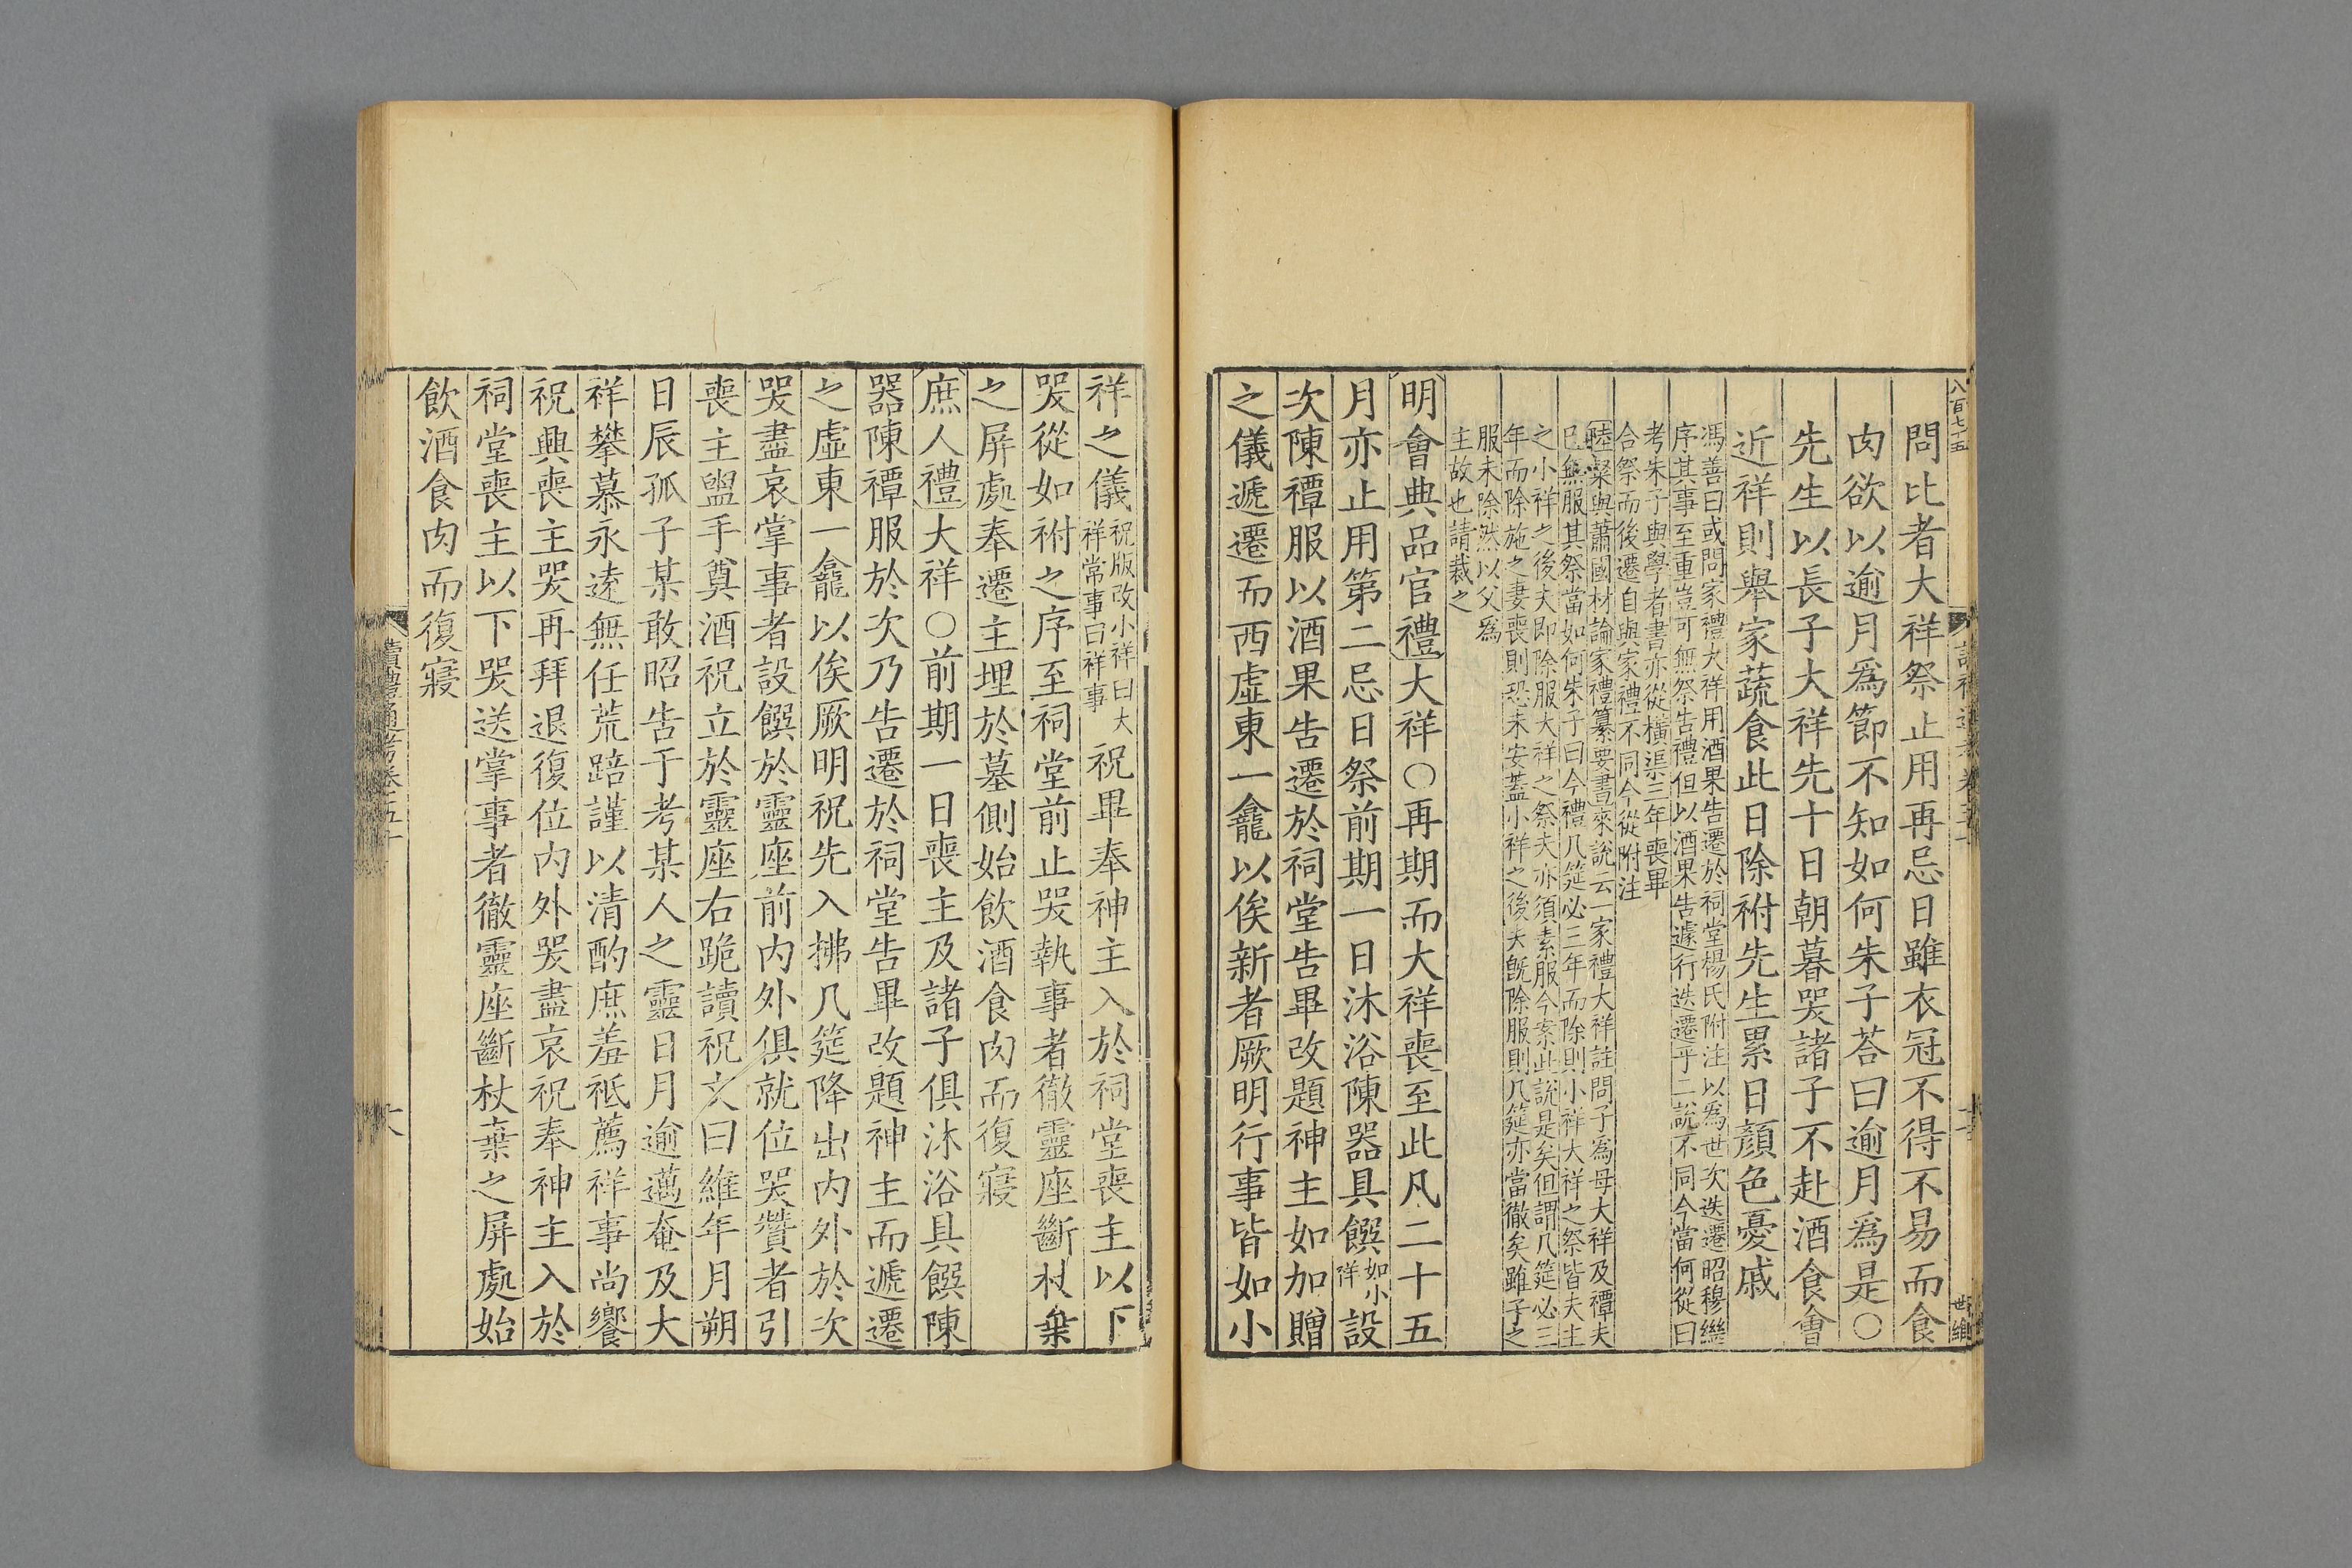 八百七十五
問比者大祥祭止用再忌日雖衣冠不得不易而食
肉欲以逾月爲節不知如何朱子荅曰逾月爲是○
先生以長子大祥先十日朝暮哭諸子不赴酒食會
近祥則舉家蔬食此日除祔先生累日顏色憂戚
馮善曰或問家禮大祥用酒果告遷於祠堂楊氏附注以爲世次迭遷昭穆繼
序其事至重豈可無祭告禮但以酒果告遽行迭遷乎二說不同今當何從曰
考朱子與學者書亦從橫渠三年喪畢
合祭而後遷自與家禮不同今從附注
陸粲與蕭國材論家禮纂要書來說云一家禮大祥註問子爲母大祥及禫夫
已無服其祭當如何朱子曰今禮几筵必三年而除則小祥大祥之祭皆夫主
之小祥之後夫即除服大祥之祭夫亦須素服今案此說是矣但謂几筵必三
年而除施之妻喪則恐未安蓋小祥之後夫旣除服則几筵亦當徹矣雖子之
服未除然以父爲
主故也請裁之
明會典品官禮大祥○再期而大祥喪至此凡二十五
月亦止用第二忌日祭前期一日沐浴陳器具饌如小祥設
次陳禫服以酒果告遷於祠堂告畢改題神主如加贈
之儀遞遷而西虛東一龕以俟新者厥明行事皆如小
祥之儀祝版改小祥曰大祥常事曰祥事祝畢奉神主入於祠堂喪主以下
哭從如祔之序至祠堂前止哭執事者徹靈座斷杖棄
之屏處奉遷主埋於墓側始飲酒食肉而復寢
庶人禮大祥○前期一日喪主及諸子俱沐浴具饌陳
器陳禫服於次乃告遷於祠堂告畢改題神主而遞遷
之虛東一龕以俟厥明祝先入拂几筵降出內外於次
哭盡哀掌事者設饌於靈座前內外俱就位哭贊者引
喪主盥手奠酒祝立於靈座右跪讀祝文曰維年月朔
日辰孤子某敢昭告于考某人之靈日月逾邁奄及大
祥攀慕永遠無任荒踣謹以清酌庶羞祗薦祥事尚饗
祝興喪主哭再拜退復位內外哭盡哀祝奉神主入於
祠堂喪主以下哭送掌事者徹靈座斷杖棄之屏處始
飲酒食肉而復寢
讀禮通考卷五十